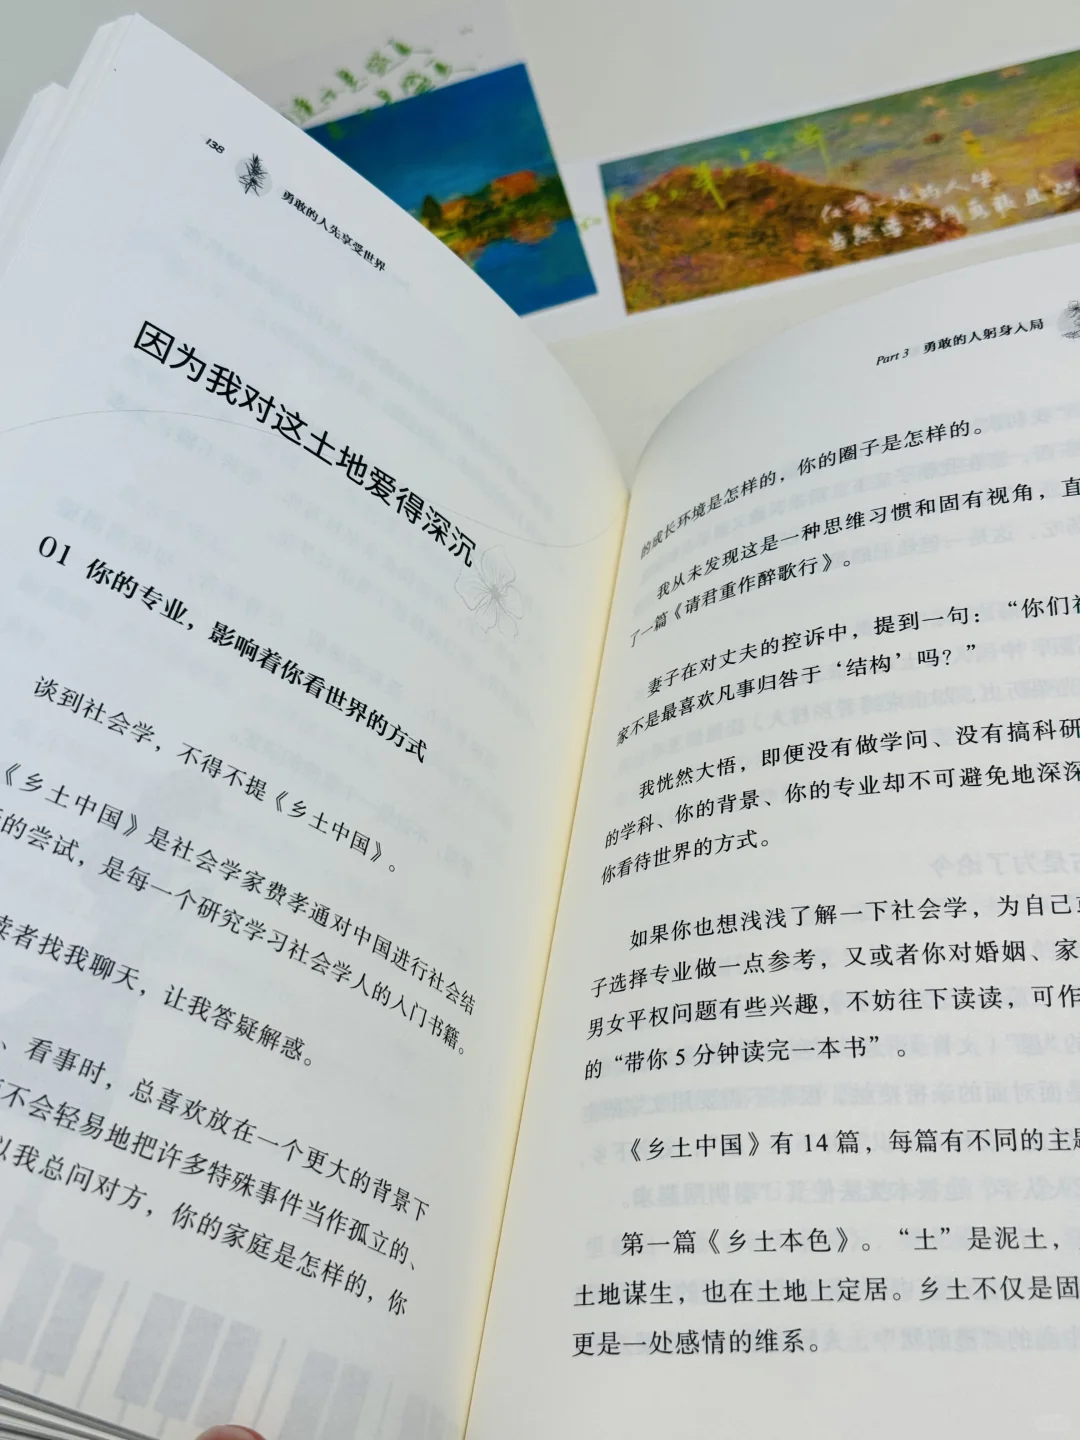 138
勇敢的人先享受世界
因为我对这土地爱得深沉
01 你的专业，影响着你看世界的方式
谈到社会学，不得不提《乡土中国》。
《乡土中国》是社会学家费孝通对中国进行社会结
的尝试，是每一个研究学习社会学人的入门书籍。
读者找我聊天，让我答疑解惑。
、看事时，总喜欢放在一个更大的背景下
不会轻易地把许多特殊事件当作孤立的、
以我总问对方，你的家庭是怎样的，你
Part 3 勇敢的人躬身入局
的成长环境是怎样的，你的圈子是怎样的。
我从未发现这是一种思维习惯和固有视角，直
了一篇《请君重作醉歌行》。
妻子在对丈夫的控诉中，提到一句：“你们社
家不是最喜欢凡事归咎于‘结构’吗？”
我恍然大悟，即便没有做学问、没有搞科研
的学科、你的背景、你的专业却不可避免地深深
你看待世界的方式。
如果你也想浅浅了解一下社会学，为自己
子选择专业做一点参考，又或者你对婚姻、家
男女平权问题有些兴趣，不妨往下读读，可作
的“带你5分钟读完一本书”。
《乡土中国》有14篇，每篇有不同的主题
第一篇《乡土本色》。“土”是泥土，
土地谋生，也在土地上定居。乡土不仅是固
更是一处感情的维系。